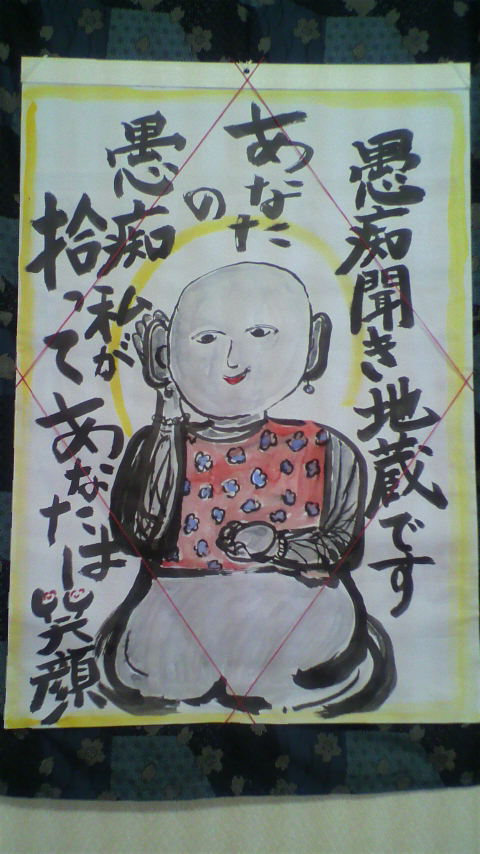 愚痴聞き地蔵です
あなた
の
愚痴私が
拾って
あなたは
笑顔